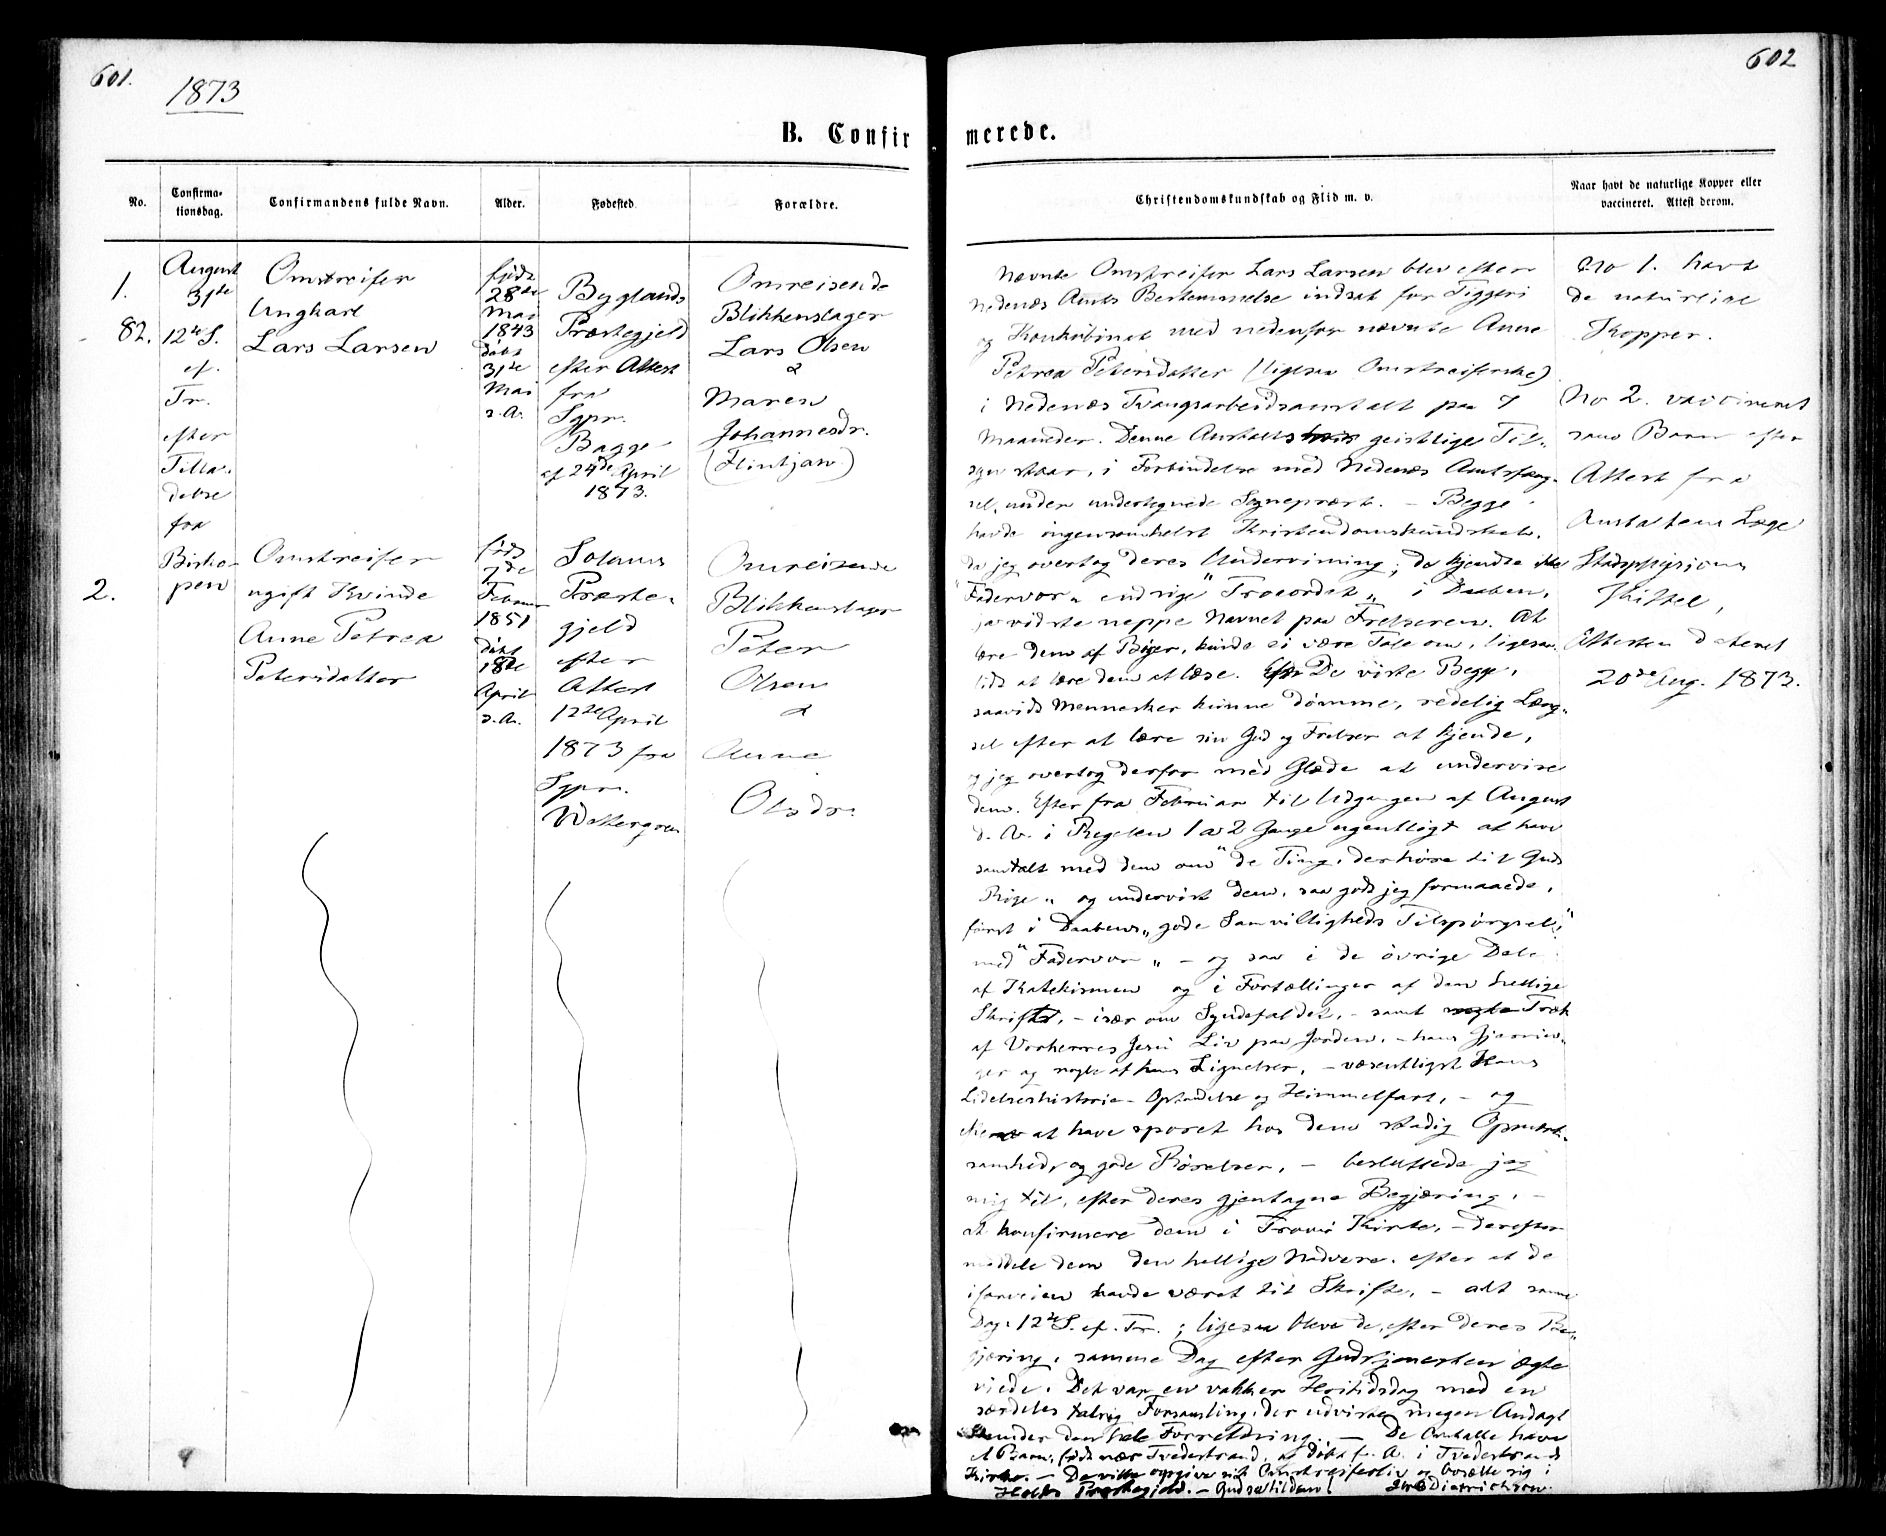 601.
1873
B. Confir
No.
Confirma-
tionsdag.
Confirmandens fulde Navn.
Alder.
Fødested.
Forældre.
1.
82.
August
31te
12te S.
ef.
Tr.
efter
Tilla-
delse
fra
Bisko-
pen
Omstreifer
Ungkarl
Lars Larsen
født
28de
Mai
1843
døbt
31te
Mai
s. A.
Byglands
Præstegjeld
efter Attest
fra
Sgpr.
Bagge
af 24de April
1873.
Omreisende
Blikkenslager
Lars Olsen
&
Maren
Johannesdr.
(Flintjan)
2.
Omstreifer
ugift Kvinde
Anne Petrea
Petersdatter
født
7de
Februar
1851
døbt
18de
April
s. A.
Solums
Præste-
gjeld
efter
Attest
12te April
1873 fra
Sgpr.
Omreisende
Blikkenslager
Peter
Olsen
&
Anne
Olsdr.
602
merede.
Christendomskundskab og Flid m. v.
Naar havt de naturlige Kopper eller
vaccineret. Attest derom.
Nævnte Omstreifer Lars Larsen blev efter
Nedenæs Amts Bestemmelse indsat for Tiggeri
og Konkubinat med nedenfor nævnte Anne
Petrea Petersdatter (ligesaa Omstreiferske)
i Nedenæs Tvangsarbeidsanstalt paa 7
Maaneder. Denne Anstalts geistlige Til-
syn staar, i Forbindelse med Nedenæs Amtsfæng-
sel, under undertegnede Sogneprest. – Begge
havde ingensomhelst Kristendomskundskab,
da jeg overtog deres Undervisning; de kjendte ikke
"Fadervor" endsige "Troesordet" i Daaben,
ja vidste neppe Navnet paa Frelseren. At
lære dem af Bøger, kunde ei være Tale om, ligesaa
lidt at lære dem at læse. De viste Begge,
saavidt Mennesker kunne dømme, redelig Læng-
sel efter at lære sin Gud og Frelser at kjende,
og jeg overtog derfor med Glæde at undervise
dem. Efter fra Februar til Udgangen af August
d. A. i Regelen 1 a 2 Gange ugentligt at have
samtalt med dem om "de Ting, der høre til Guds
Rige" og undervist dem, saa godt jeg formaaede,
først i Daabens "gode Samvittigheds Tilspørgsel",
med "Fadervor" – og saa i de øvrige Dele
af Katekismen og i Fortællinger af den hellige
Skrift, – især om Syndefaldet, – samt Træk
af Vorherres Jesu Liv paa Jorden, – hans Gjernin-
ger og nogle af hans Lignelser, – væsentligst Hans
Lidelseshistorie – Opstandelse og Himmelfart, – og
at have sporet hos dem stadig Opmærk-
somhed, og gode Rørelser, – besluttede jeg
mig til, efter deres gjentagne Begjæring, –
at konfirmere dem i Tromø Kirke, – derefter
meddele dem den hellige Nadvere, efter at de
iforveien havde været til Skrifte, – alt samme
Dag 12te S. ef. Tr.; ligesaa bleve de, efter deres Be-
gjæring, samme Dag efter Gudstjenesten ægte-
viede. Det var en vakker Høitidsdag med en
særdeles talrig Forsamling, der udviste megen Andagt
under den hele Forretning. – De havde
et Barn, født nær Tvedestrand, døbt f. A. i Tvedestrands
Kirke. – De ville opgive sit Omstreiferliv og bosætte sig i
Holts Præstegjeld. – Gud se til dem!
Dietrichson.
No 1. havt
de naturlige
Kopper.
No 2. vaccineret
som Barn efter
Attest fra
Anstaltens Læge
Stadsphysicus
Kittel,
Attesten dateret
20de Aug. 1873.